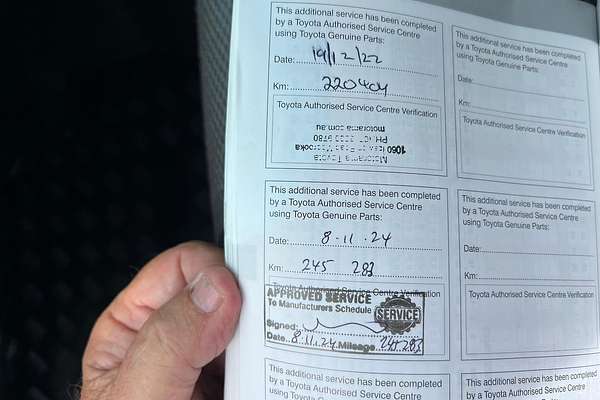 This additional service has been completed
by a Toyota Authorised Service Centre
using Toyota Genuine Parts:
Date: 19/12/22
Km: 220404
Toyota Authorised Service Centre Verification
motorama.com.au
PH
1060
Motorama Toyota
This additional service has been completed
by a Toyota Authorised Service Centre
using Toyota Genuine Parts:
Date:
Km:
Toyota Authorised Service Centre Verification
This additional service has been completed
by a Toyota Authorised Service Centre
using Toyota Genuine Parts:
Date: 8.11.24
Km: 245 283
Toyota Authorised Service Centre Verification
APPROVED SERVICE
To Manufacturers Schedule
SERVICE
Signed:
Date 8.11.24 Mileage 245283
This additional service has been completed
by a Toyota Authorised Service Centre
using Toyota Genuine Parts:
Date:
Km:
Toyota Authorised Service Centre Verification
This additional service has been completed
by a Toyota Authorised Service Centre
using Toyota Genuine Parts:
This additional service has been completed
by a Toyota Authorised Service Centre